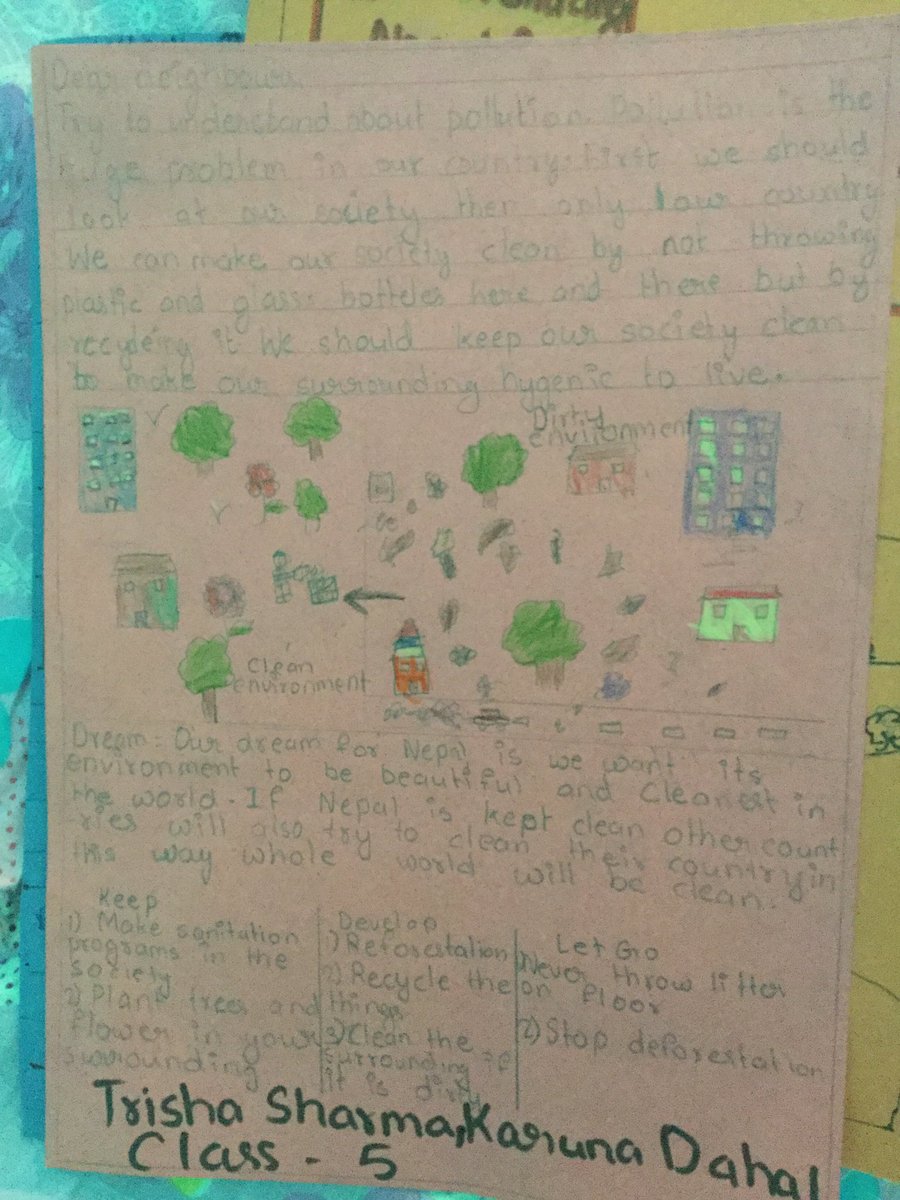 Dear neighbours
Try to understand about pollution. Pollution is the
huge problem in our country. First we should
look at our society then only our country
We can make our society clean by not throwing
plastic and glass botteles here and there but by
recycleing it We should keep our society clean
to make our surrounding hygenic to live.
Dirty
environment
Clean
environment
Dream: Our dream for Nepal is we want its
environment to be beautiful and cleanest in
the world. If Nepal is kept clean other count
ries will also try to clean their country in
this way whole world will be clean.
Keep
1) Make sanitation
programs in the
society
2) Plant trees and
flower in your
surrounding
Develop
1) Reforestation
2) Recycle the
things
3) Clean the
surrounding if
it is dirty
Let Go
1) Never throw litter
on floor
2) Stop deforestation
Trisha Sharma, Karuna Dahal
Class - 5